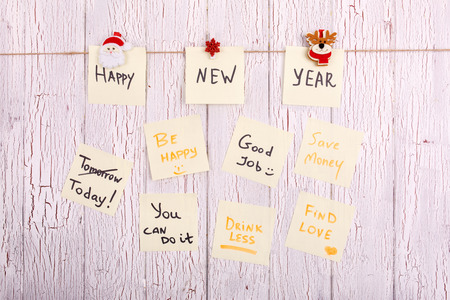 HAPPY
NEW
YEAR
BE
HAPPY
Good
Job
Save
Money
Tomorrow
Today!
You
CAN
DO iT
DRINK
LESS
FIND
LOVE